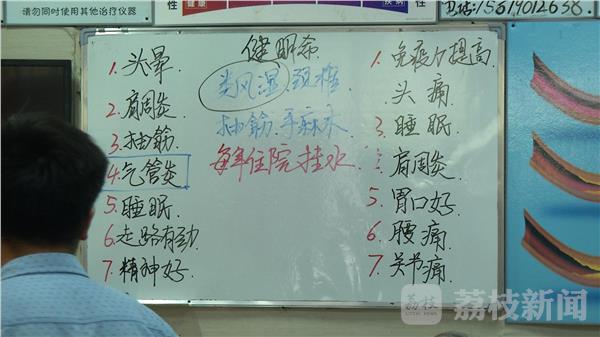 请勿同时使用其他治疗仪器
性
健康
疾病
性
电话:15614012638.
健明希
1.头晕.
2.肩周炎
3.抽筋.
4.气管炎
5.睡眠.
6.走路有劲.
7.精神好.
类风湿.颈椎
抽筋.手麻木
每年住院挂水.
1.免疫力提高.
头痛
3.睡眠.
肩周炎.
5.胃口好.
6.腰痛.
7.关节痛.
荔枝
荔枝新闻